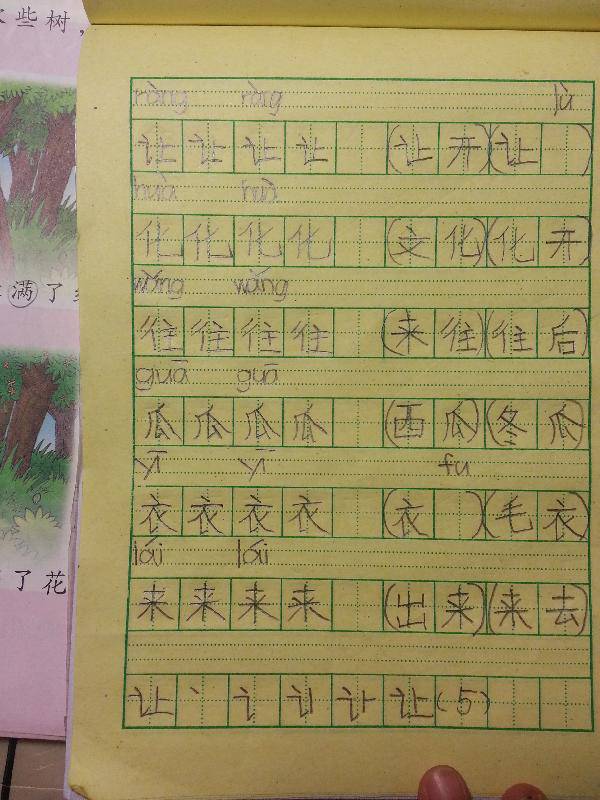 些树,
满了
了花
ràng ràng lù
让 让 让 让 (让开)(让 )
huà huà
化 化 化 化 (文化)(化开)
wǎng wǎng
往 往 往 往 (来往)(往后)
guā guā
瓜 瓜 瓜 瓜 (西瓜)(冬瓜)
yī yī fu
衣 衣 衣 衣 (衣 )(毛衣)
lái lái
来 来 来 来 (出来)(来去)
让 丶 讠 让 (5)